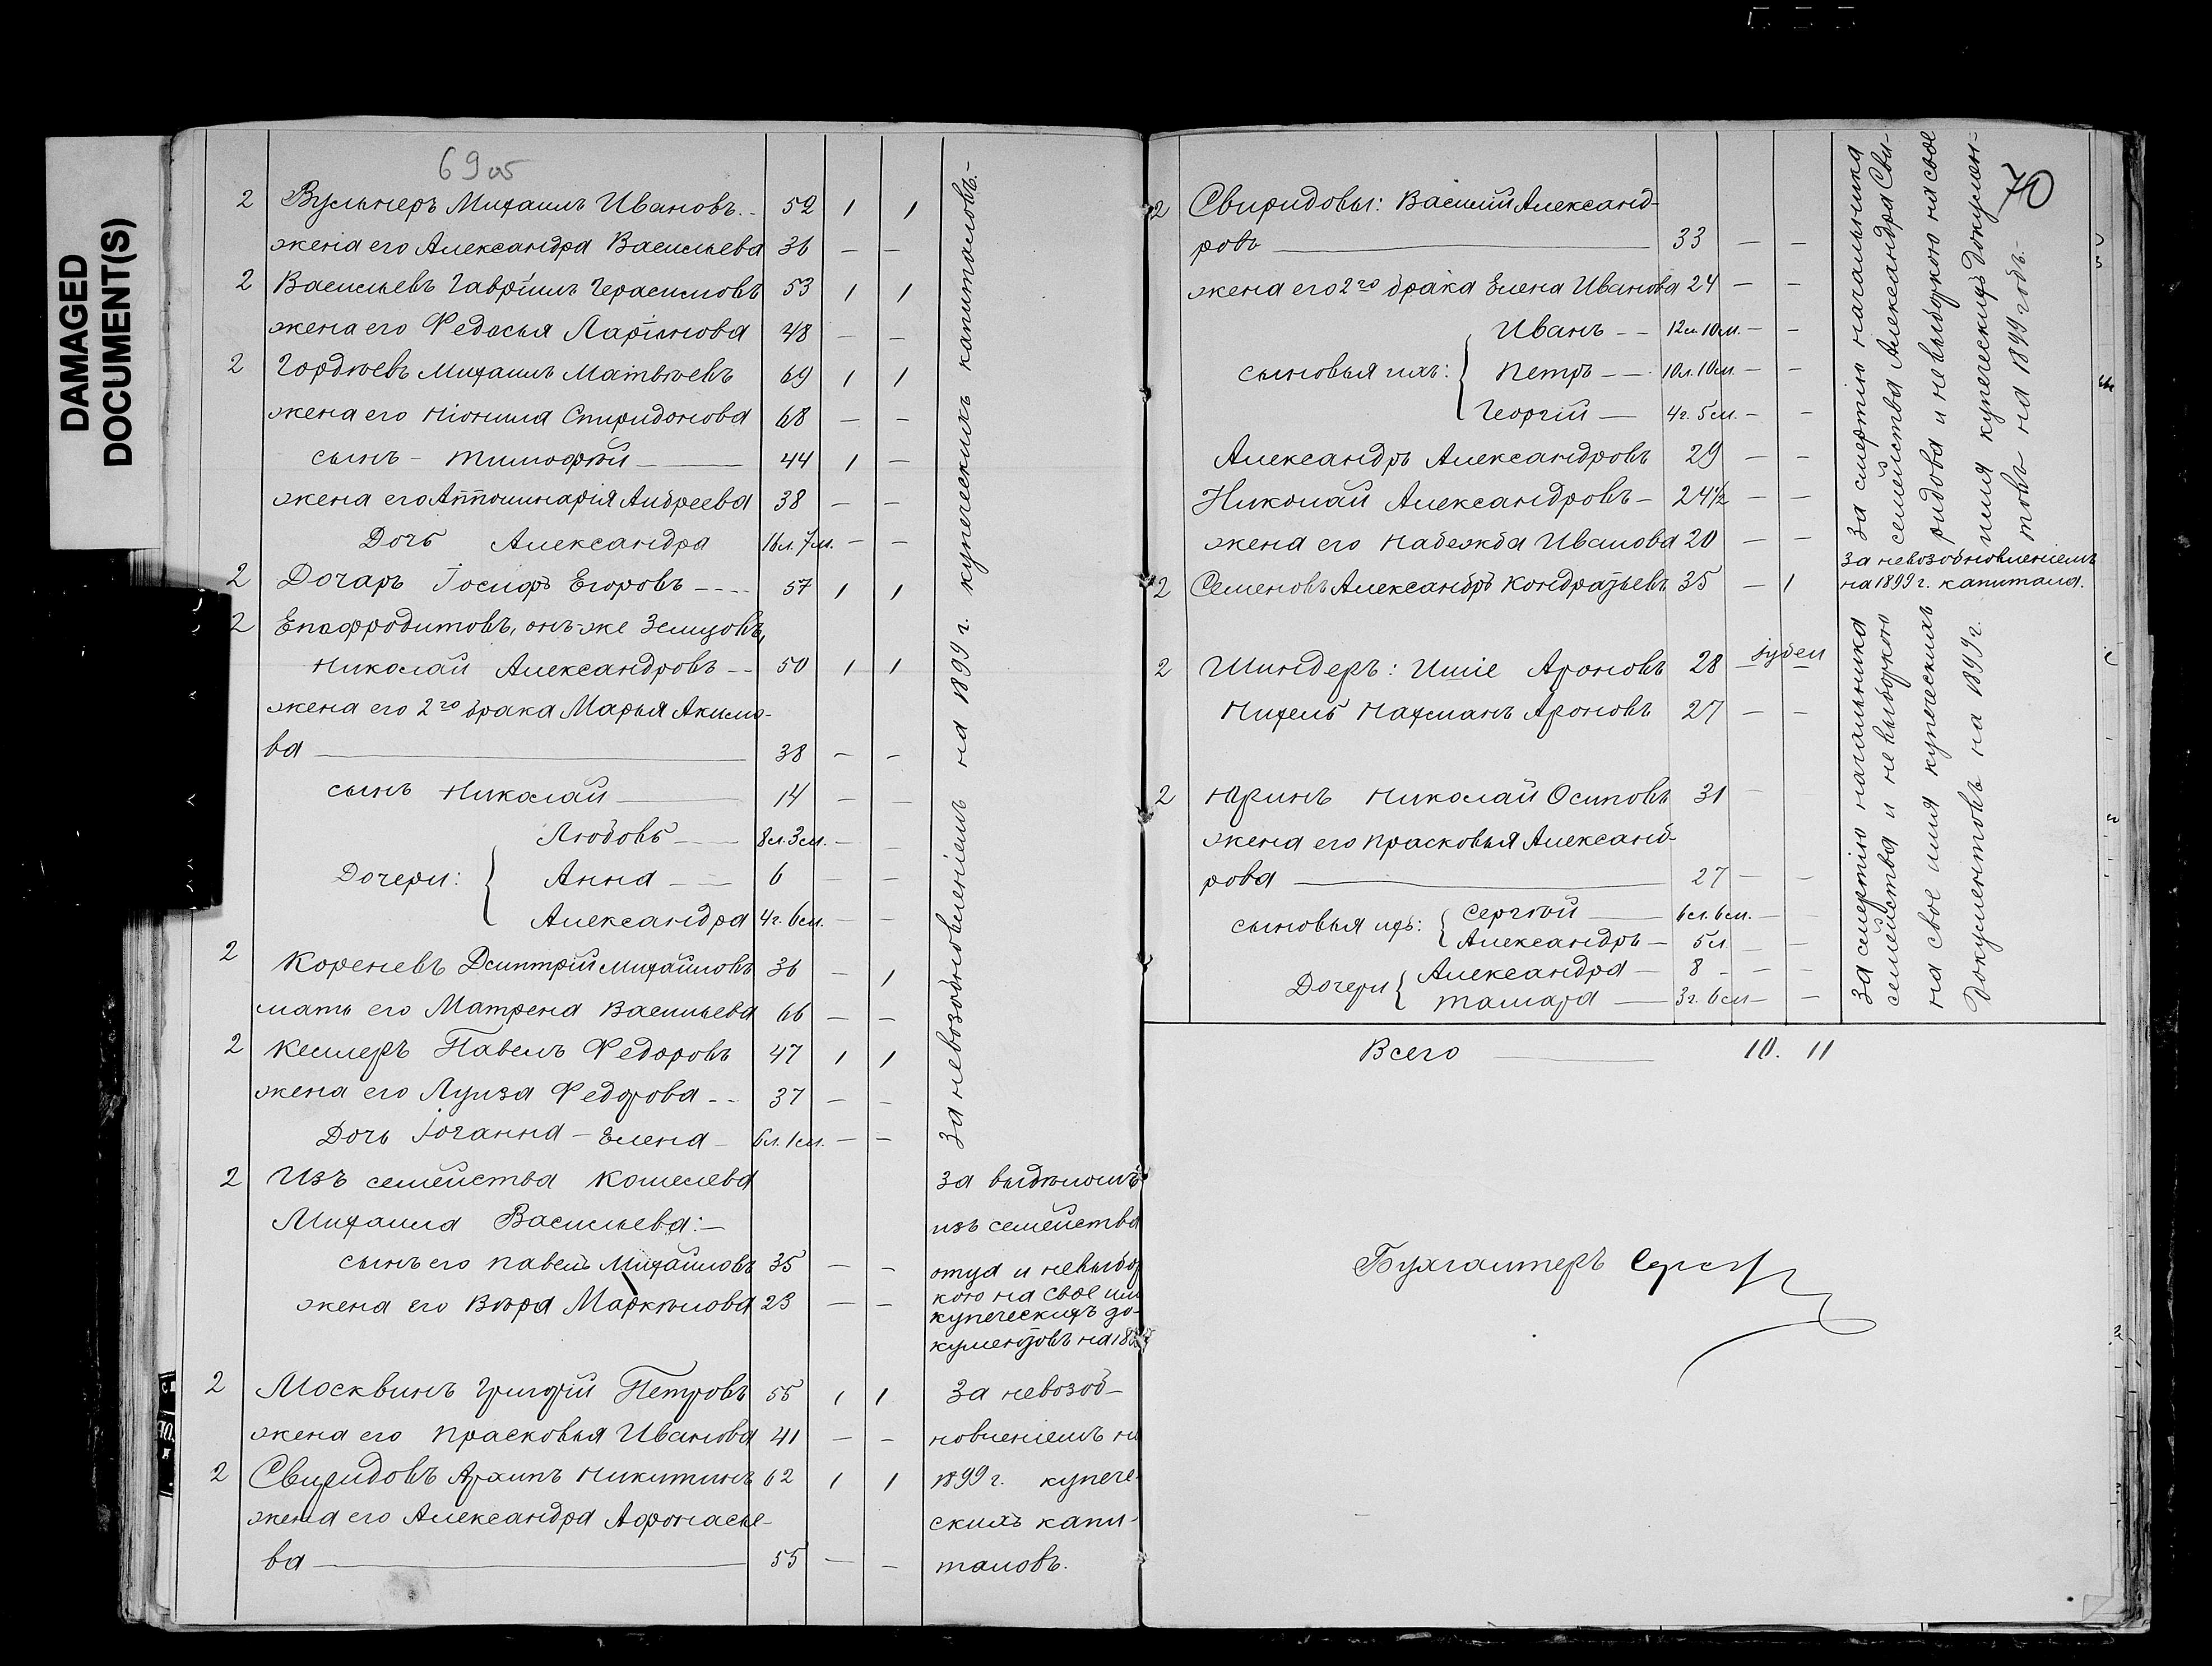 DAMAGED
DOCUMENT(S)
69 об
2 Вульнеръ Михаилъ Ивановъ.. 52 1 1
жена его Александра Васильева 36 — —
2 Васильевъ Гавріилъ Герасимовъ 53 1 1
жена его Федосья Ларіонова 48 — —
2 Гордѣевъ Михаилъ Матвѣевъ 69 1 1
жена егоНіонила Спиридонова 68 — —
сынъ - Тимофѣй — 44 1 —
жена его Апполинарія Андреева 38 — —
Дочь Александра 16л. 7м. — —
2 Дочаръ Іосифъ Егоровъ ---- 57 1 1
2 Епафродитовъ, онъ-же Земцовъ,
Николай Александровъ -- 50 1 1
жена его 2го брака Марья Акимо-
ва — 38 — —
сынъ Николай — 14 — —
Любовь — 8л. 3м. — —
Дочери: { Анна — 6 — —
Александра 4г. 6м. — —
2 Кореневъ Дмитрій Михайловъ 36 — 1
мать его Матрена Васильева 66 — —
2 Кеслеръ Павелъ Федоровъ 47 1 1
жена его Луиза Федорова -- 37 — —
Дочь Іоганна - Елена — 6л. 1м. — —
2 Изъ семейства Кошелева
Михаила Васильева:—
сынъ его Павелъ Михайловъ 35 — —
жена его Вѣра Маркѣлова 23 — —
2 Москвинъ Григорій Петровъ 55 1 1
жена его Прасковья Иванова 41 — —
2 Свиридовъ Архипъ Никитинъ 62 1 1
жена его Александра Афонасье-
ва — 55 — —
За невозобновленіемъ на 1899 г. купеческихъ капиталовъ.-
за выдѣломъ
изъ семейства
отца и невыбор
кою на свое имя
купеческихъ до-
кументовъ на 18
За невозоб-
новленіемъ на
1899 г. купече-
скихъ капи-
таловъ.
70
2 Свиридовы: Василій Александ-
ровъ — 33 — —
жена его 2го брака Елена Иванова 24 — —
Иванъ -- 12л. 10м. — —
сыновья ихъ: { Петръ -- 10л. 10м. — —
Георгій — 4г. 5м. — —
Александръ Александровъ 29 — —
Николай Александровъ - 24½ — —
жена его Надежда Иванова 20 — —
2 Семеновъ Александръ Кондратьевъ 35 — 1
2 Шиндеръ: Ишіе Ароновъ 28 — —
Нихель Нахманъ Ароновъ 27 — —
2 Юринъ Николай Осиповъ 31 —
жена его Прасковья Александ-
рова — 27 — —
сыновья ихъ: { Сергѣй — 6л. 6м. — —
Александръ — 5л. — —
Дочери { Александра — 8 — —
Тамара — 3г. 6м — —
За смертію начальника
семейства Александра Сви-
ридова и невыборкою на свое
имя купеческихъ докумен-
товъ на 1899 годъ.-
За невозобновленіемъ
на 1899 г. капитала.
За смертію начальника
семейства и невыборкою
на свое имя купеческихъ
документовъ на 1899 г.
Всего — 10. 11
Бухгалтеръ